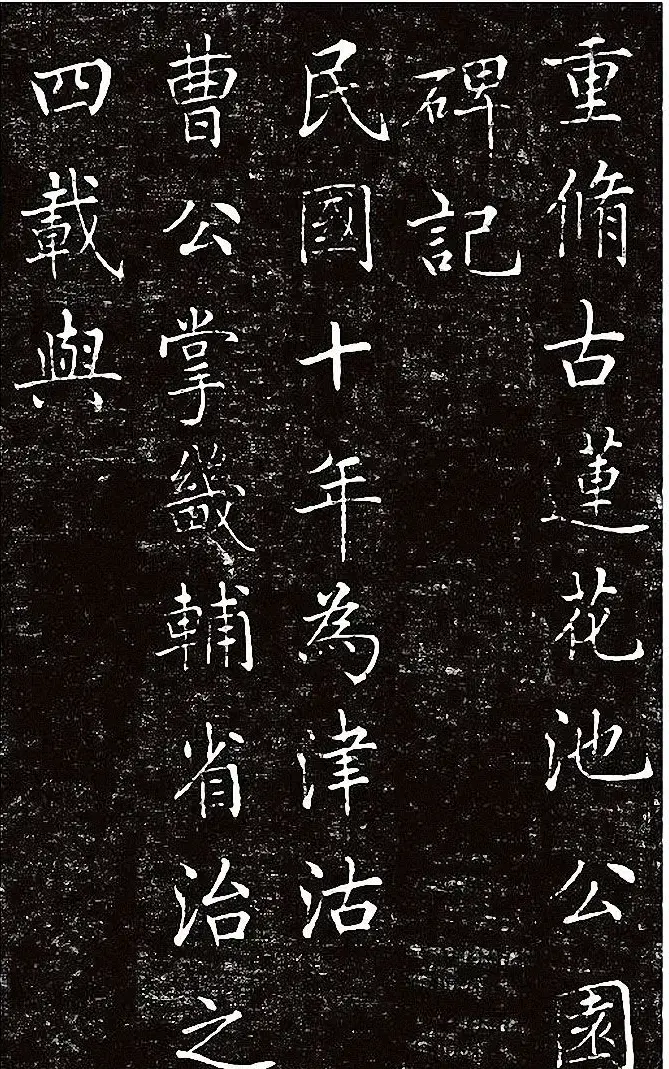 重脩古蓮花池公園
碑記
民國十年為津沽
曹公掌畿輔省治之
四載與